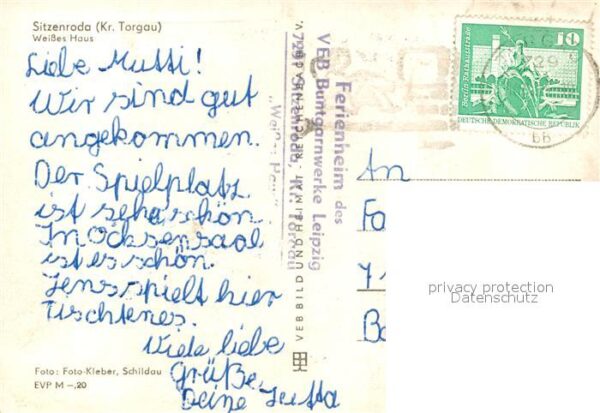 Sitzenroda (Kr. Torgau)
Weißes Haus
Liebe Mutti!
Wir sind gut
angekommen.
Der Spielplatz
ist sehr schön.
Im Ochsensaal
ist es schön.
Jens spielt hier
Tischtenes.
Viele liebe
Grüße.
Deine Jutta
Foto: Foto-Kleber, Schildau
EVP M –,20
VEB BILD UND HEIMAT REICHENBACH V.
Ferienheim des
VEB Buntgarnwerke Leipzig
7291 Sitzenroda, Kr. Torgau
„Weißes Haus"
10
Berlin, Rathausstraße
DEUTSCHE DEMOKRATISCHE REPUBLIK
729
bb
An
Fa
Ba
privacy protection
Datenschutz